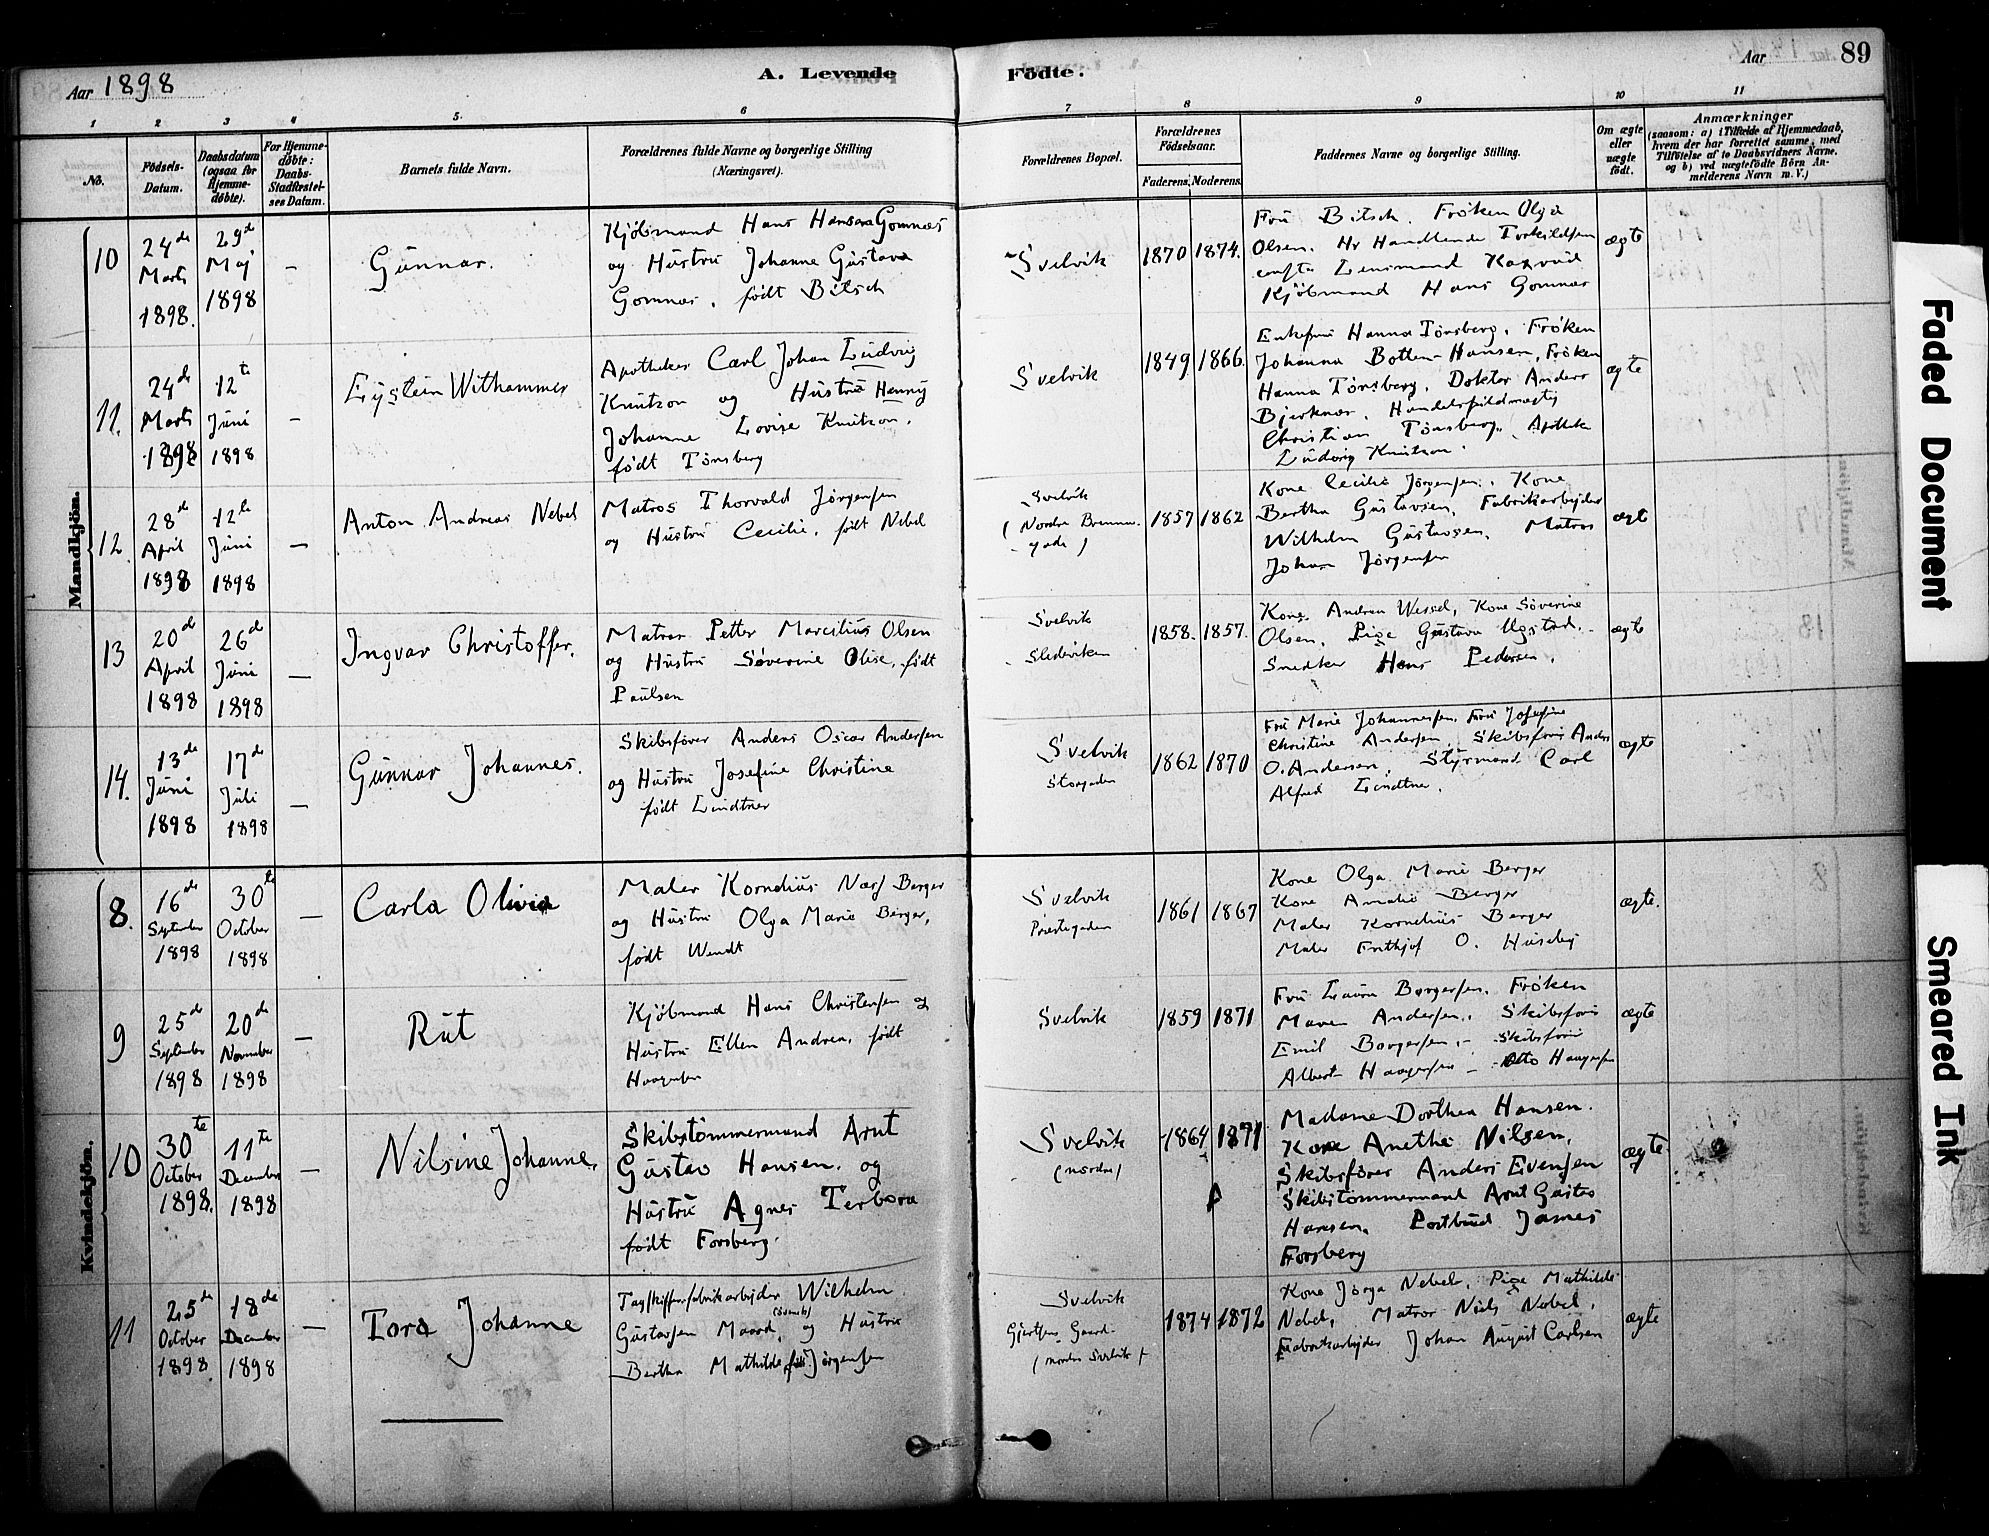 Aar 1898
A. Levende
Födte.
Aar
89
1
2
3
4
5.
6
7
8
9
10
11
No.
Födsels-
Datum.
Daabsdatum
(ogsaa for
Hjemme-
döbte).
For Hjemme-
döbte:
Daabs-
Stadfæstel-
ses Datum.
Barnets fulde Navn.
Forældrenes fulde Navne og borgerlige Stilling
(Næringsvei).
Forældrenes Bopæl.
Forældrenes
Födselsaar.
Faderens. Moderens.
Faddernes Navne og borgerlige Stilling.
Om ægte
eller
uægte
født.
Anmærkninger
(saasom: a) i Tilfælde af Hjemmedaab,
hvem der har forrettet samme, med
Tilföielse af to Daabsvidners Navne.
og b) ved uægtefödte Börn An-
melderens Navn m. V.)
Mandkjön.
10
24de
Marts
1898.
29de
Maj
1898
-
Gunnar.
Kjøbmand Hans Hansen Gomnæs
og Hustru Johanne Gustava
Gomnæs, født Bitsch
Svelvik
1870
1874.
Fru Bitsch. Frøken Olga
Olsen. Hr Handlende Torkildsen
Lensmand
Kjøbmand Hans Gomnæs
ægte
11.
24de
Marts
1898
12te
Juni
1898
-
Eystein Withammer
Apotheker Carl Johan Ludvig
Knutzon og Hustru Henny
Johanne Lovise Knutzon,
født Tönsberg
Svelvik
1849
1866.
Enkefru Hanna Tönsberg, Frøken
Johanna Botten-Hansen, Frøken
Hanna Tönsberg, Doktor Anders
Bjerknæs, Handelsfuldmægtig
Christian Tönsberg, Apothek
Ludvig Knutzon.
ægte
12
28de
April
1898
12te
Juni
1898
-
Anton Andreas Nebel
Matros Thorvald Jörgensen
og Hustru Cecilie, født Nebel
Svelvik
(Nordre
gade)
1857
1862
Kone Cecilie Jörgensen, Kone
Bertha Gustavsen, Fabrikarbejder
Wilhelm Gustavsen, Matros
Johan Jörgensen
ægte
13
20de
April
1898
26de
Juni
1898
-
Ingvar Christoffer.
Matros Petter Marcilius Olsen
og Hustru Söverine Olise, født
Paulsen
Svelvik
1858.
1857.
Kone Andrea Wessel, Kone Söverine
Olsen, Pige Gustava Ugstad,
Snedker Hans Pedersen.
ægte
14.
13de
Juni
1898
17de
Juli
1898
-
Gunnar Johannes.
Skibsförer Anders Oscar Andersen
og Hustru Josefine Christine
født Lindtner
Svelvik
Storgaden
1862
1870
Fru Marie Johannessen, Fru Josefine
Christine Andersen, Skibsförer Anders
O. Andersen, Styrmand Carl
Alfred Lindtner.
ægte
Kvindekjön.
8.
16de
September
1898
30te
October
1898
-
Carla Olivia
Maler Kornelius Berger
og Hustru Olga Marie Berger,
født Wendt
Svelvik
Prestegaden
1861
1867
Kone Olga Marie Berger
Kone Amalie Berger
Maler Kornelius Berger
Maler Frithjof O. Huseby
ægte.
9
25de
September
1898
20de
November
1898
-
Rut
Kjøbmand Hans Christensen og
Hustru Ellen Andrea, født
Svelvik
1859
1871
Fru Laura Borgersen, Frøken
Maren Andersen, Skibsförer
Emil Borgersen, Skibsförer
Albert Haagensen - Otto Haagensen
ægte
10
30te
October
1898.
11te
December
1898
-
Nilsine Johanne.
Skibstömmermand Arnt
Gustav Hansen og
Hustru Agnes Terbora
født Forsberg.
Svelvik
(nordre)
1864
1871
Madame Dorthea Hansen.
Kone Anethe Nilsen,
Skibsförer Anders Evensen
Skibstömmermand Arnt Gustav
Hansen, Postbud James
Forsberg
ægte
11
25de
October
1898
18de
December
1898
-
Tora Johanne
Tagskifferfabrikarbejder Wilhelm
Gustavsen (svensk) og Hustru
Bertha Mathilde født Jörgensen
Svelvik
Gjertsens Gaard
(nordre Svelvik)
1874
1872
Kone Jörga Nebel, Pige Mathilde
Nebel, Matros Niels Nebel,
Fabrikarbejder Johan August Carlsen
ægte
Faded Document
Smeared Ink